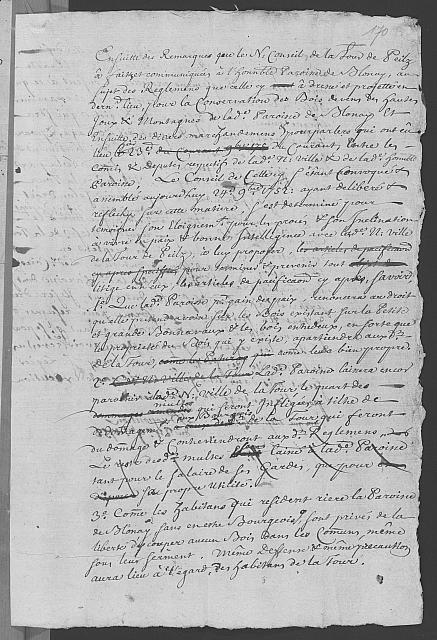 170
Ensuitte des Remarques que le N. Conseil de la Tour de Peilz
a fait et communiqué à l'honnble Paroisse de Blonay, au
sujet des Reglemens que celle cy à dressé et projettés en
dern. lieu, pour la Conservation des Bois devens des hautes
Joux & Montagnes de lad. Paroisse de Blonay Et
Ensuitte des divers marchandemens & pourparlers qui ont eu
lieu le 23. du Courant, Entre les
comis & deputés respectifs de lad. N. ville & de lad. honnble
Paroisse, Le Conseil de Cellecy s'étant Convoqué &
assemblé aujourdhuy 24. 9bre 1752. ayant deliberé &
reflechy sur cette matière, s'est determiné pour
temoigner son Eloignem. pour les procès & son Inclination
à vivre en paix & bonne Intelligence avec lad. N. ville
de la Tour de Peilz, de luy proposer, les articles de pacification
pour terminer & prevenir tout
litige cy après, Savoir
1. Que lad. Paroisse pr gain de paix, renoncera au droit
qu'elle peut avoir sur les Bois existant sur la Petite
et grande Bonnavaux & les bois entredeux, en sorte que
la proprieté du Bois qui y existe, appartiendra aux d.
de la Tour, come leur bien propre.
2. Lad. Paroisse laissera encor
à lad. N. Ville de la Tour, le quart des
qui seront Infligées à tiltre de
de la Tour qui feront
du domage & Contreviendront aux d. Reglemens
Le reste desd. multes à lad. Paroisse
tant pour le Salaire de ses Gardes, que pour
sa propre utilité.
3. Come les habitans qui resident riere la Paroisse
de Blonay sans en etre Bourgeois, sont privés de la
liberté de couper aucun Bois dans les Comuns, même
sous leur serment. Même deffense & même precaution
aura lieu à l'égard des habitans de la Tour.